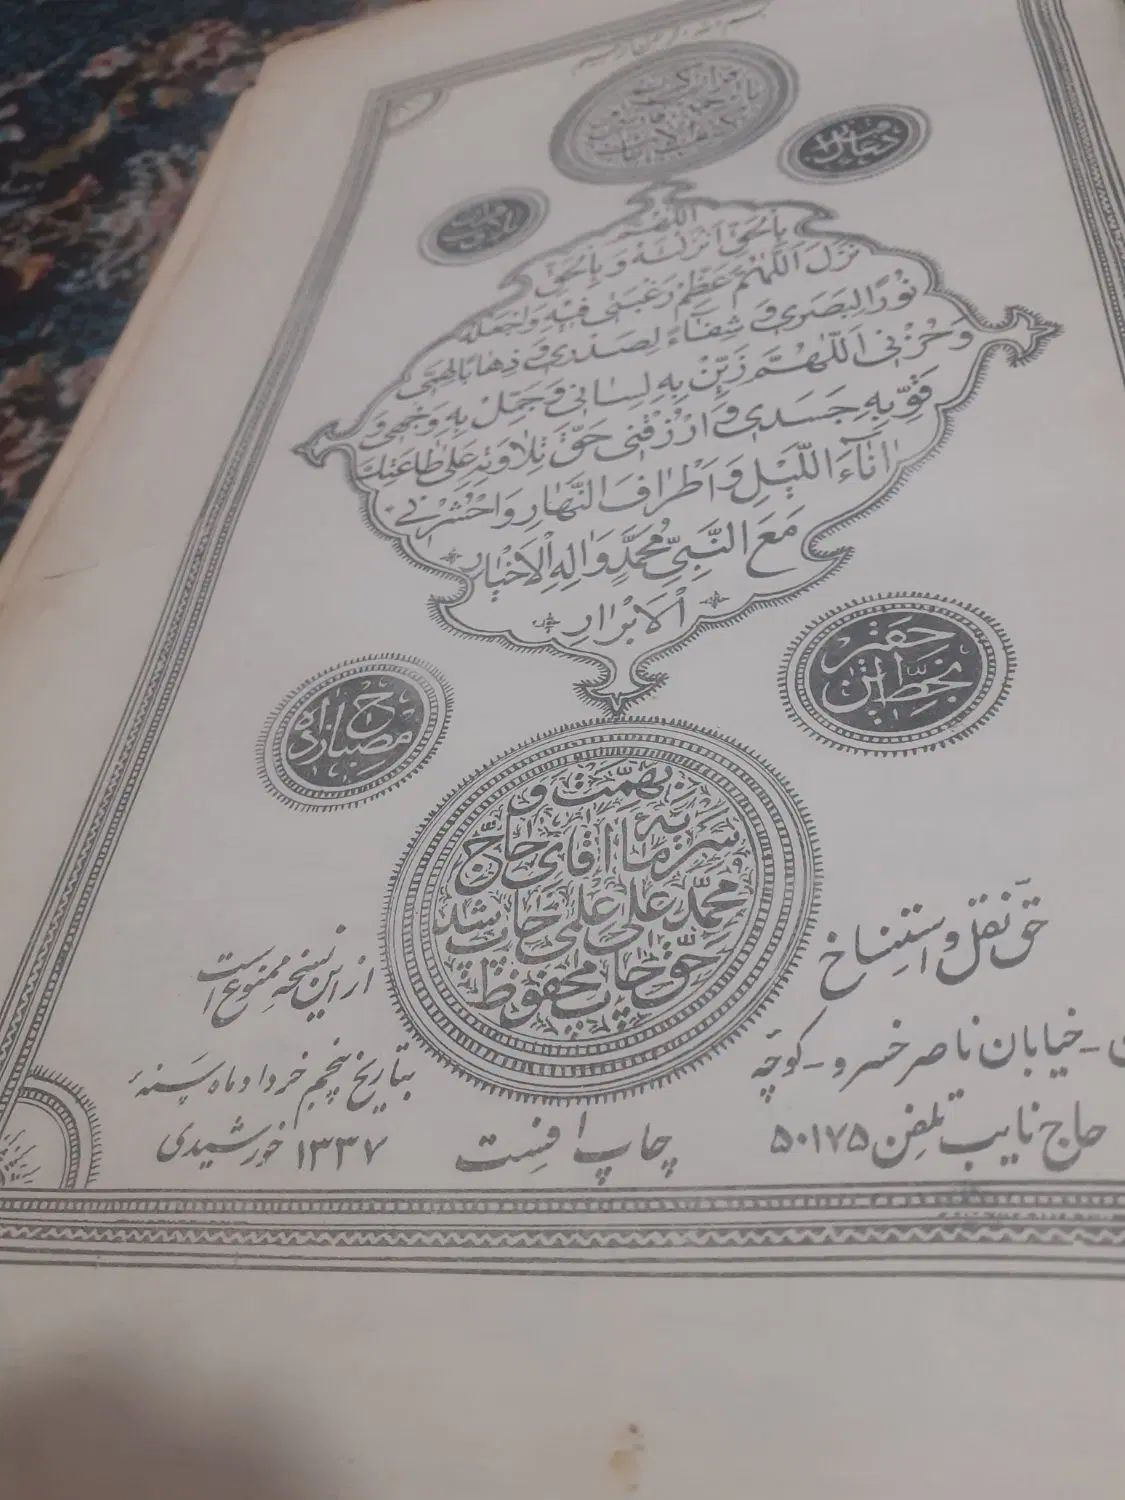 بسم الله الرحمن الرحیم
اللهم
بالحق انزلته و بالحق
نزل اللهم عظم رغبتی فیه واجعله
نورا لبصری و شفاء لصدری و ذهابا لهمی
و حزنی اللهم زین به لسانی و جمل به وجهی و
قو به جسدی و ارزقنی حق تلاوته علی طاعتک
اناء اللیل و اطراف النهار و احشرنی
مع النبی محمد و اله الاخیار
الابرار
بخط احقر
ج مصباح زاده
بهمت و
سرمایه آقای حاج
محمد علی علمی چاپ شد
حق چاپ محفوظ
حق نقل و استنساخ
از این نسخه ممنوع است
خیابان ناصر خسرو - کوچه
حاج نایب تلفن ۵۰۱۷۵
چاپ افست
بتاریخ پنجم خرداد ماه سنه
۱۳۳۷ خورشیدی